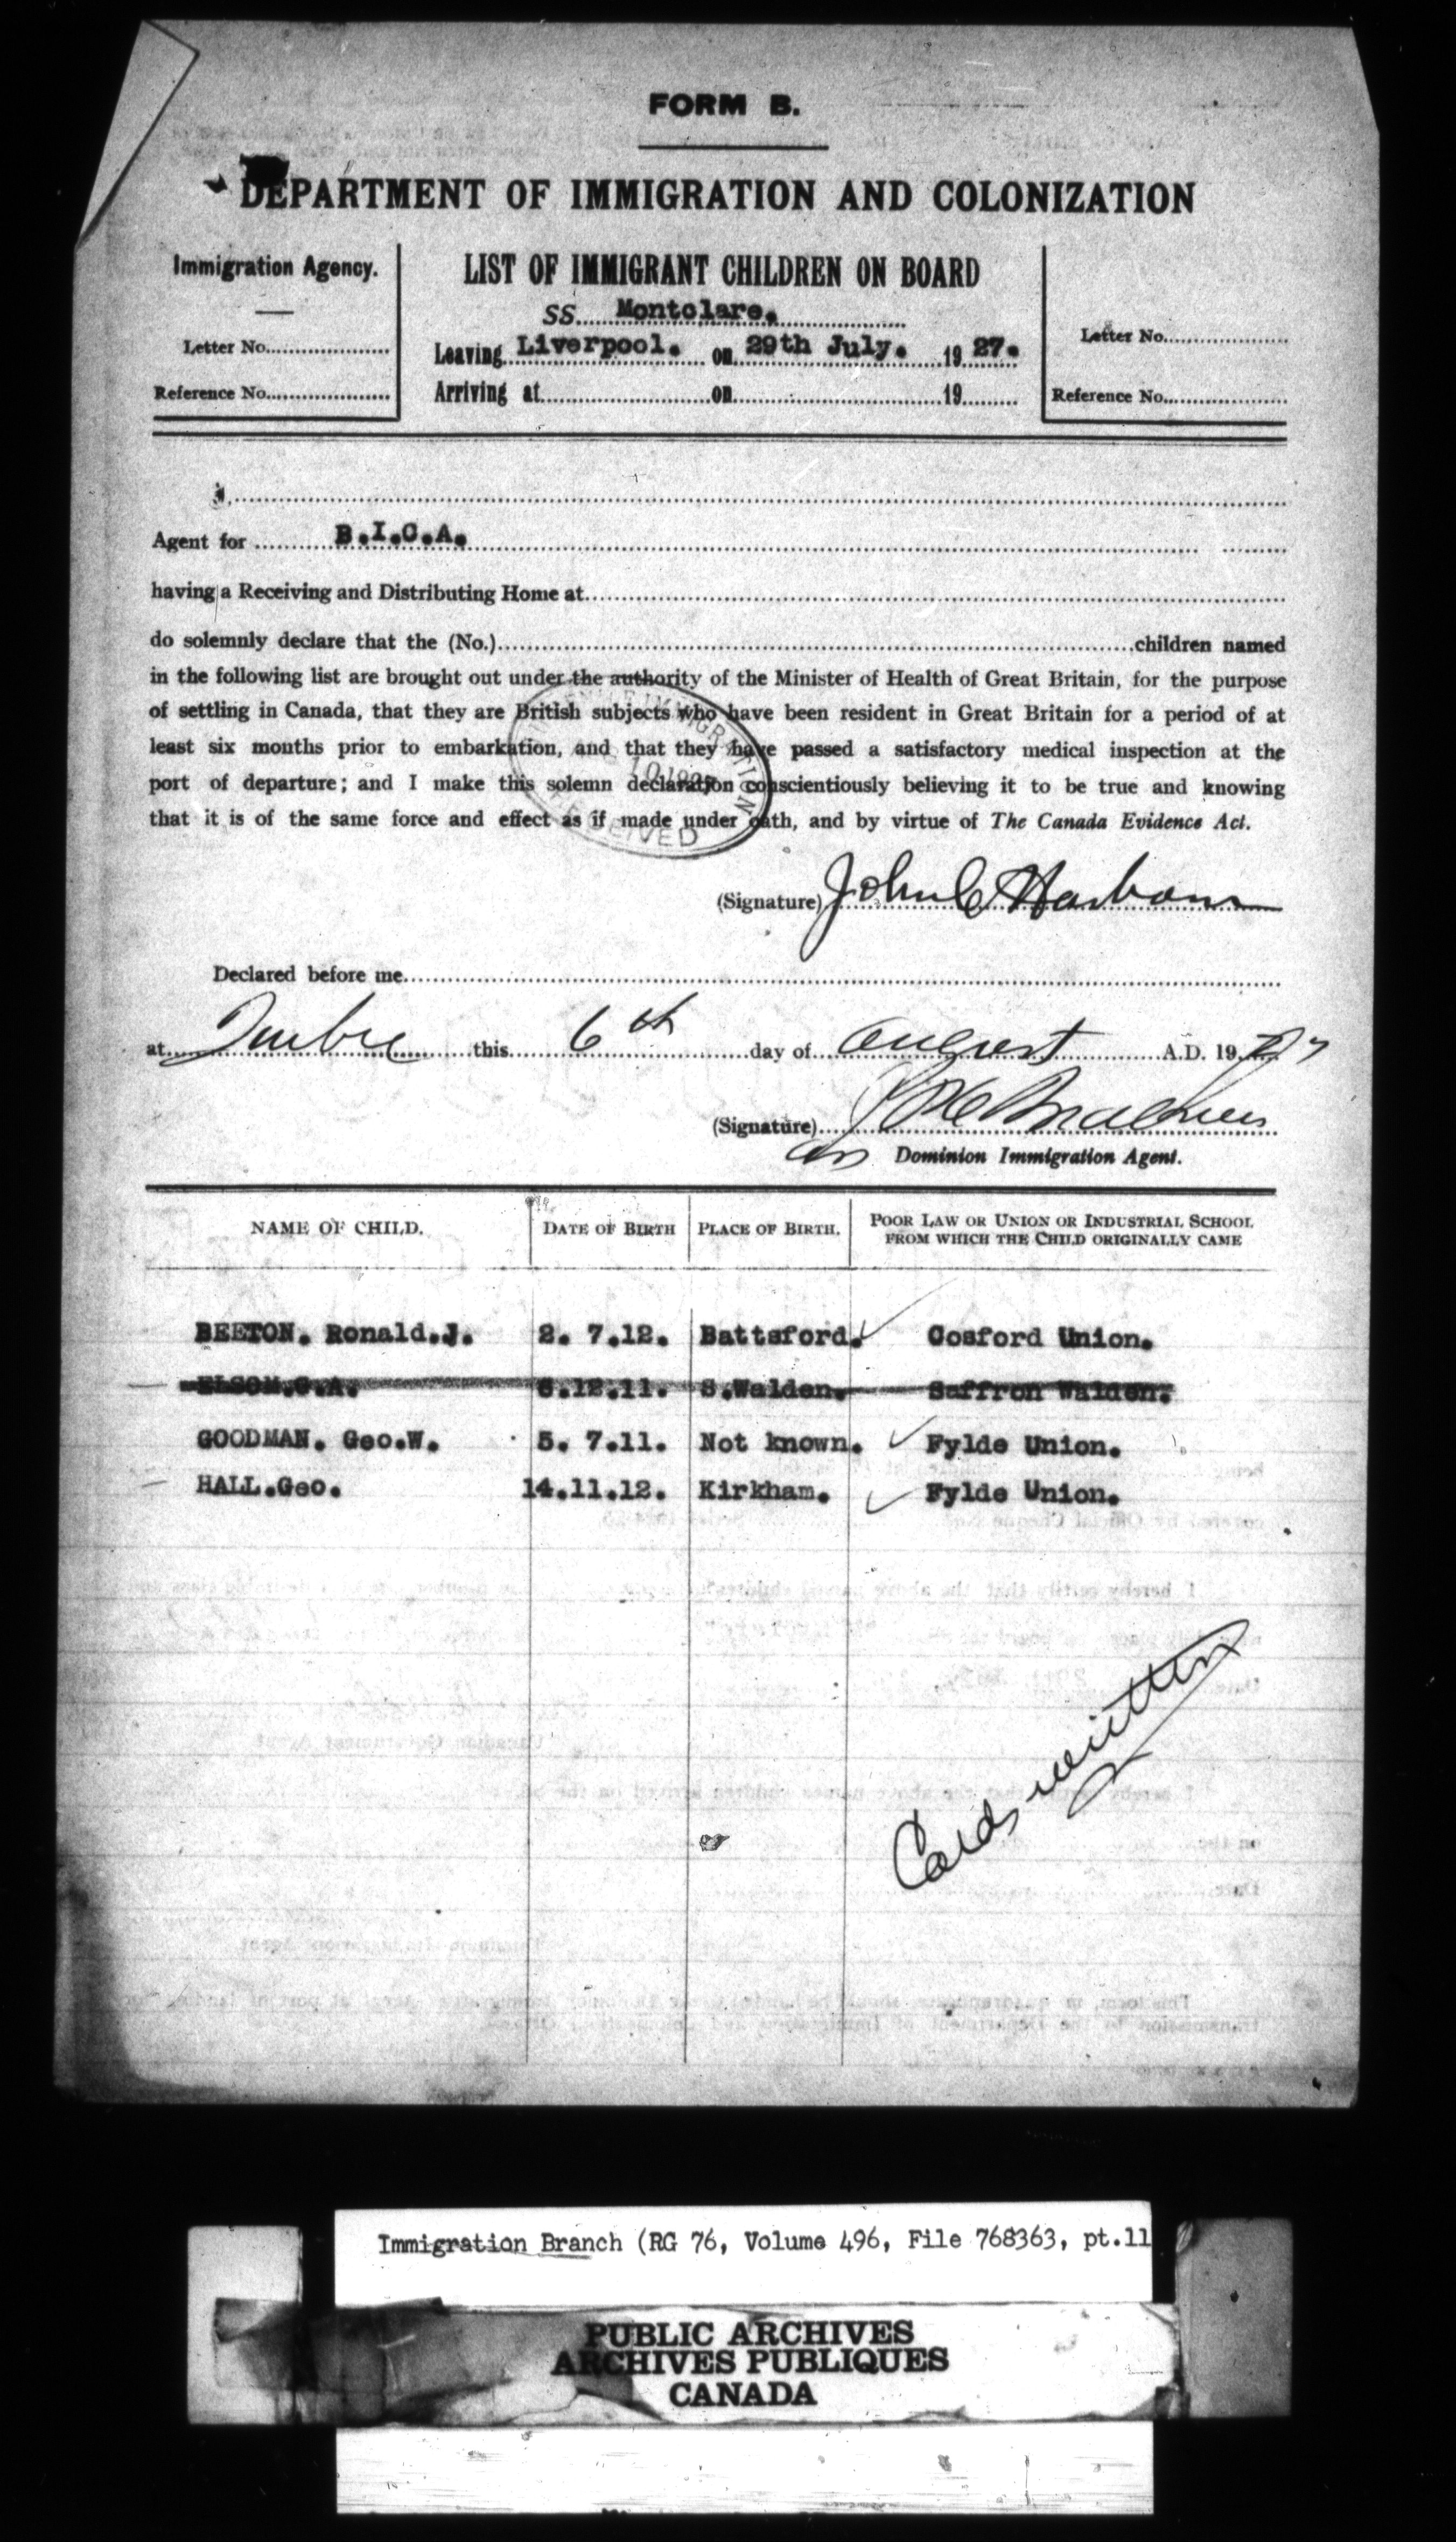 FORM B.
DEPARTMENT OF IMMIGRATION AND COLONIZATION
Immigration Agency.
Letter No.
Reference No.
LIST OF IMMIGRANT CHILDREN ON BOARD
SS Montclare.
Leaving Liverpool. on 29th July. 19 27.
Arriving at on 19
Letter No.
Reference No.
I,
Agent for B.I.C.A.
having a Receiving and Distributing Home at
do solemnly declare that the (No.) children named
in the following list are brought out under the authority of the Minister of Health of Great Britain, for the purpose
of settling in Canada, that they are British subjects who have been resident in Great Britain for a period of at
least six months prior to embarkation, and that they have passed a satisfactory medical inspection at the
port of departure; and I make this solemn declaration conscientiously believing it to be true and knowing
that it is of the same force and effect as if made under oath, and by virtue of The Canada Evidence Act.
IMMIGRATION
RECEIVED
(Signature) John C Harbour
Declared before me
at Quebec this 6th day of August A.D. 1927
(Signature)
Dominion Immigration Agent.
NAME OF CHILD. DATE OF BIRTH PLACE OF BIRTH. POOR LAW OR UNION OR INDUSTRIAL SCHOOL FROM WHICH THE CHILD ORIGINALLY CAME
BEETON. Ronald.J. 2. 7.12. Battsford. Cosford Union.
ELSOM.C.A. 6.12.11. S.Walden. Saffron Walden.
GOODMAN. Geo.W. 5. 7.11. Not known. Fylde Union.
HALL.Geo. 14.11.12. Kirkham. Fylde Union.
Cards written
Immigration Branch (RG 76, Volume 496, File 768363, pt.11
PUBLIC ARCHIVES
ARCHIVES PUBLIQUES
CANADA